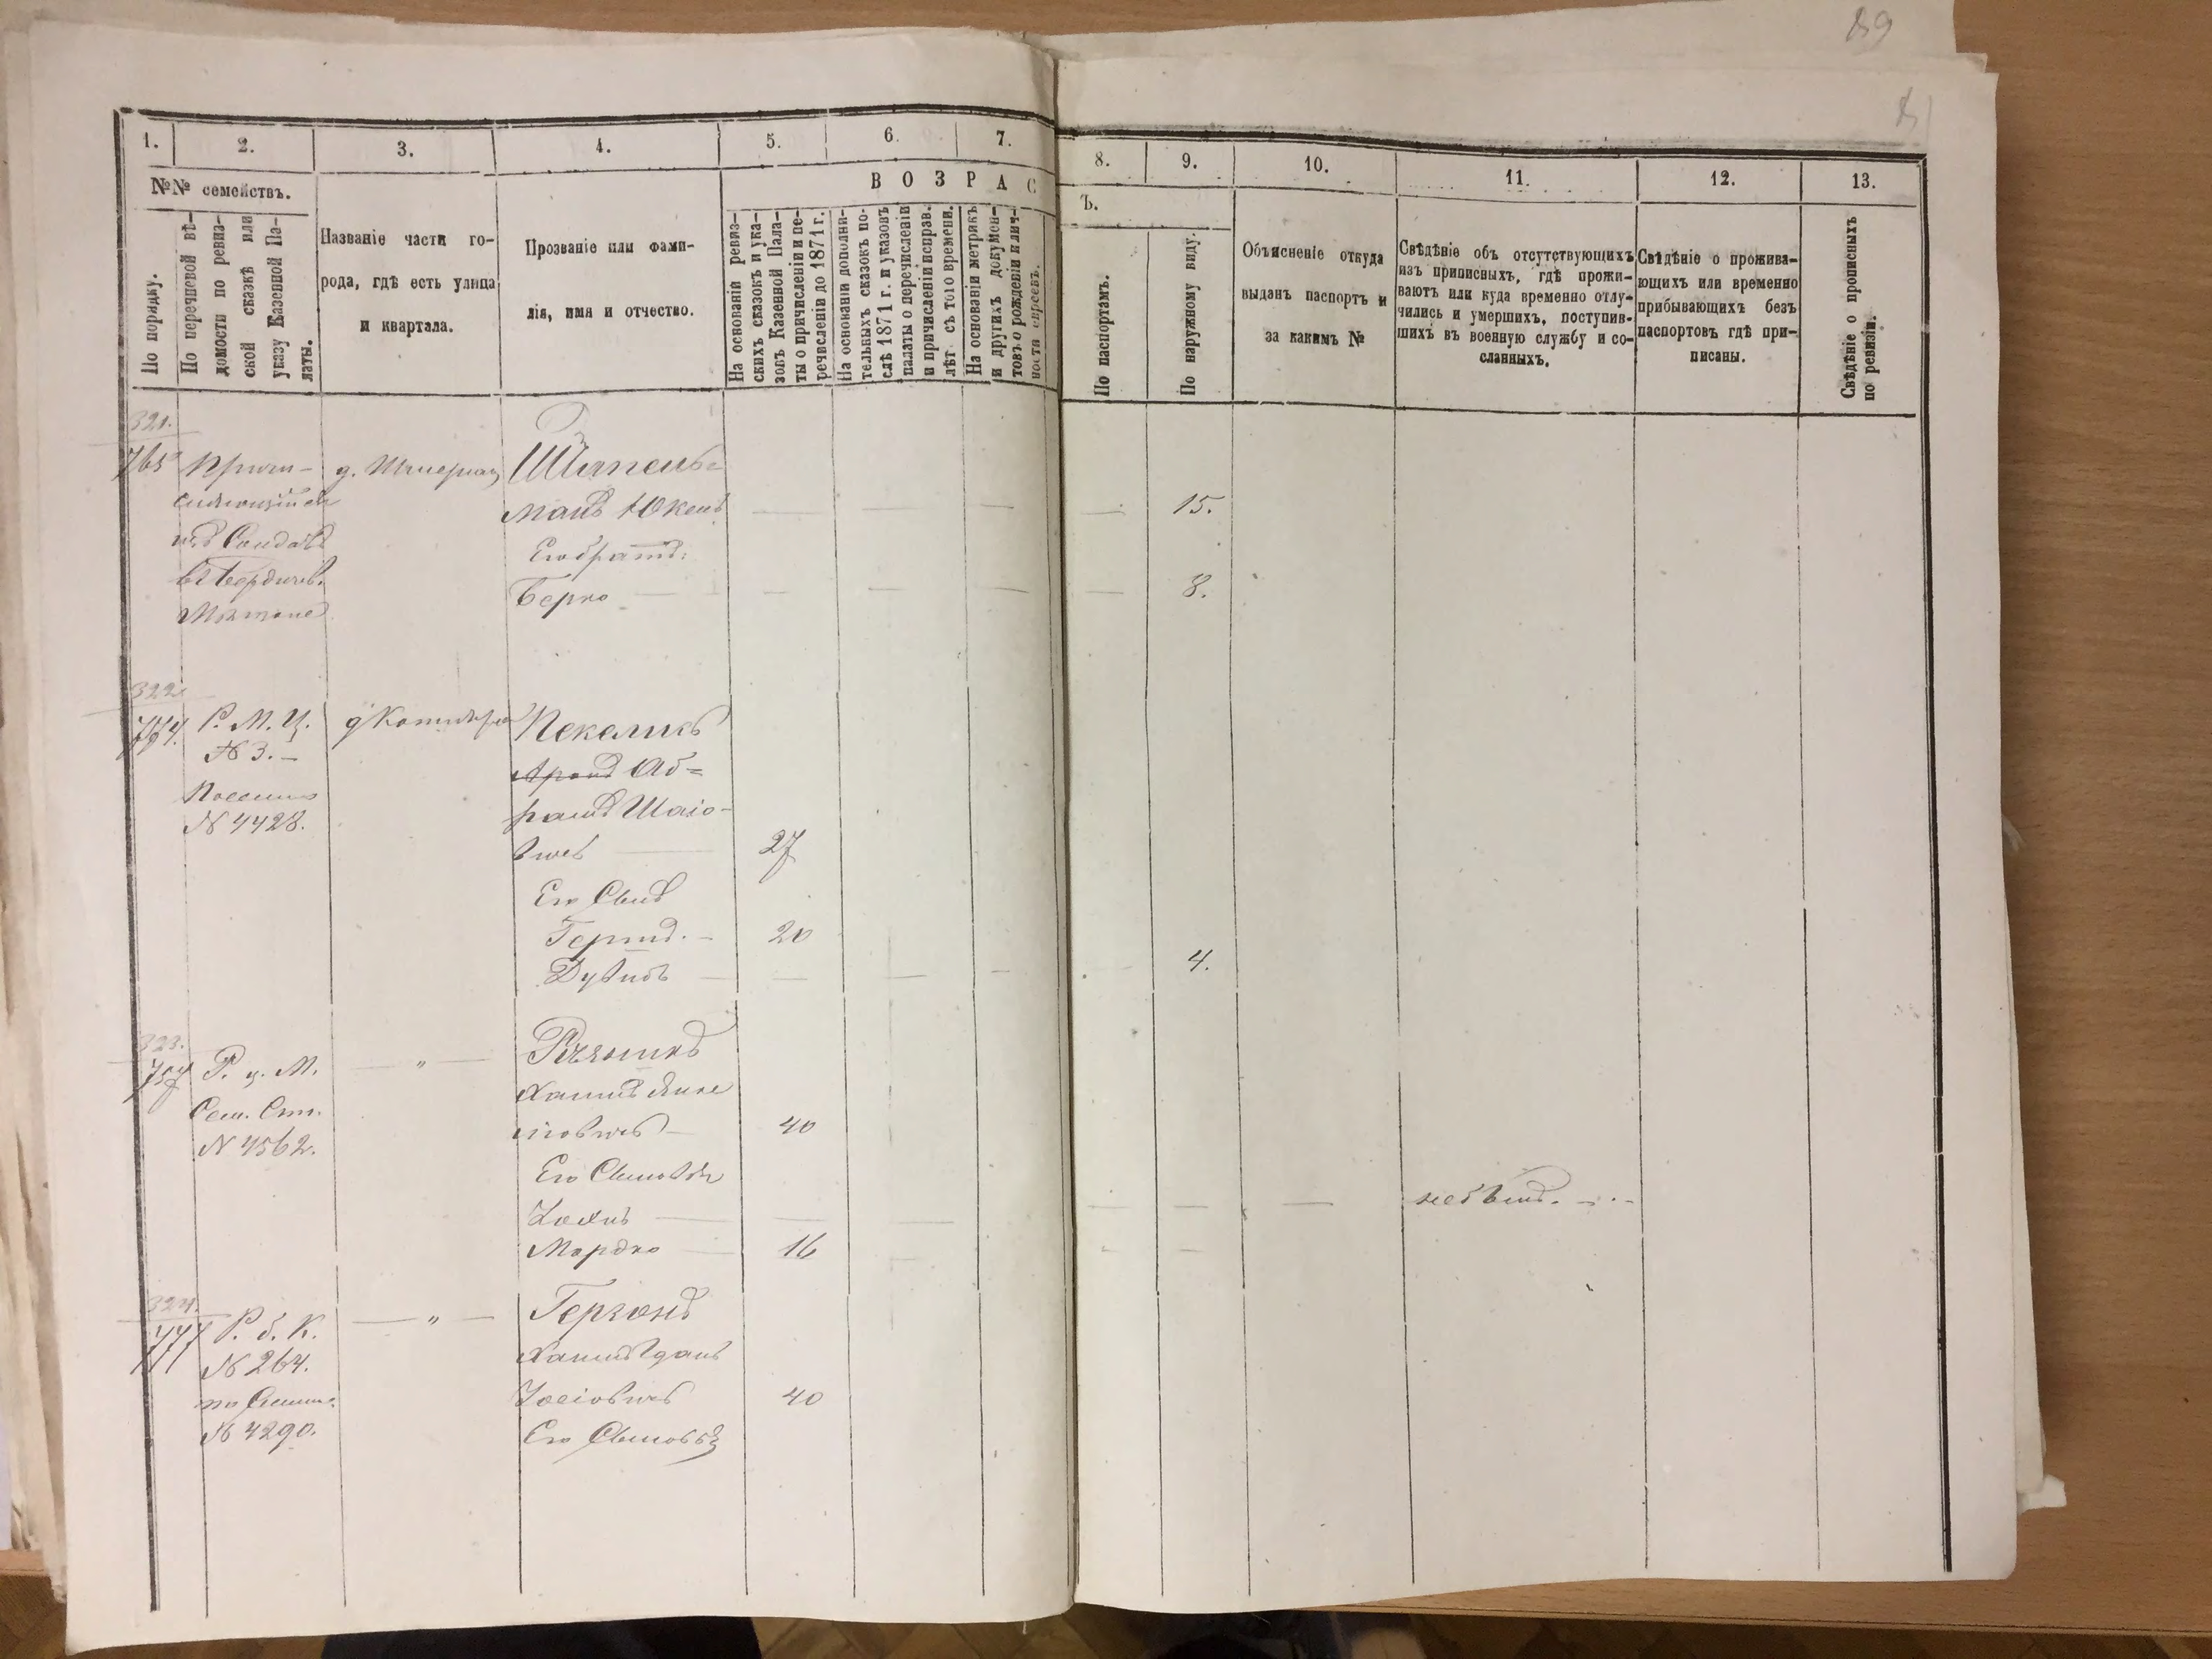 89
1. 2. 3. 4. 5. 6. 7. 8. 9. 10. 11. 12. 13.
№№ семействъ.
ВОЗРАС
Ъ.
По порядку.
По перечневой вѣ-
домости по ревиз-
ской сказкѣ или
указу Казенной Па-
латы.
Названіе части го-
рода, гдѣ есть улица
и квартала.
Прозваніе или фами-
лія, имя и отчество.
На основаніи ревиз-
скихъ сказокъ и ука-
зовъ Казенной Пала-
ты о причисленіи и пе-
речисленіи до 1871 г.
На основаніи дополни-
тельныхъ сказокъ по-
слѣ 1871 г. и указовъ
палаты о перечисленіи
и причисленіи исправ.
лѣт съ того времени.
На основаніи метрикъ
и другихъ докумен-
товъ о рожденіи и лич-
ности евреевъ.
По паспортамъ.
По наружному виду.
Объясненіе откуда
выданъ паспортъ и
за какимъ №
Свѣдѣніе объ отсутствующихъ
изъ приписныхъ, гдѣ прожи-
ваютъ или куда временно отлу-
чились и умершихъ, поступив-
шихъ въ военную службу и со-
сланныхъ.
Свѣдѣніе о прожива-
ющихъ или временно
прибывающихъ безъ
паспортовъ гдѣ при-
писаны.
Свѣдѣніе о прописныхъ
по ревизіи.
321.
765
Шпель=
манъ Юкель 15.
Его братъ:
Берко 8.
322
764. Р. М. Ц.
№ 3. —
№ 4428.
Пекаликъ
Аронъ Аб=
рамъ Шаіо-
вичъ 27
Его Сынъ
Гершъ. — 20
Дувидъ 4.
323.
757 Р. ц. М. — „ —
№ 4562.
Резникъ
Хаимъ
40
Его Сыновья
Мордко 16
324.
777 Р. б. К. — „ —
№ 264.
№ 4290.
Герзонъ
Хаимъ
Іосіовичъ 40
Его Сыновья